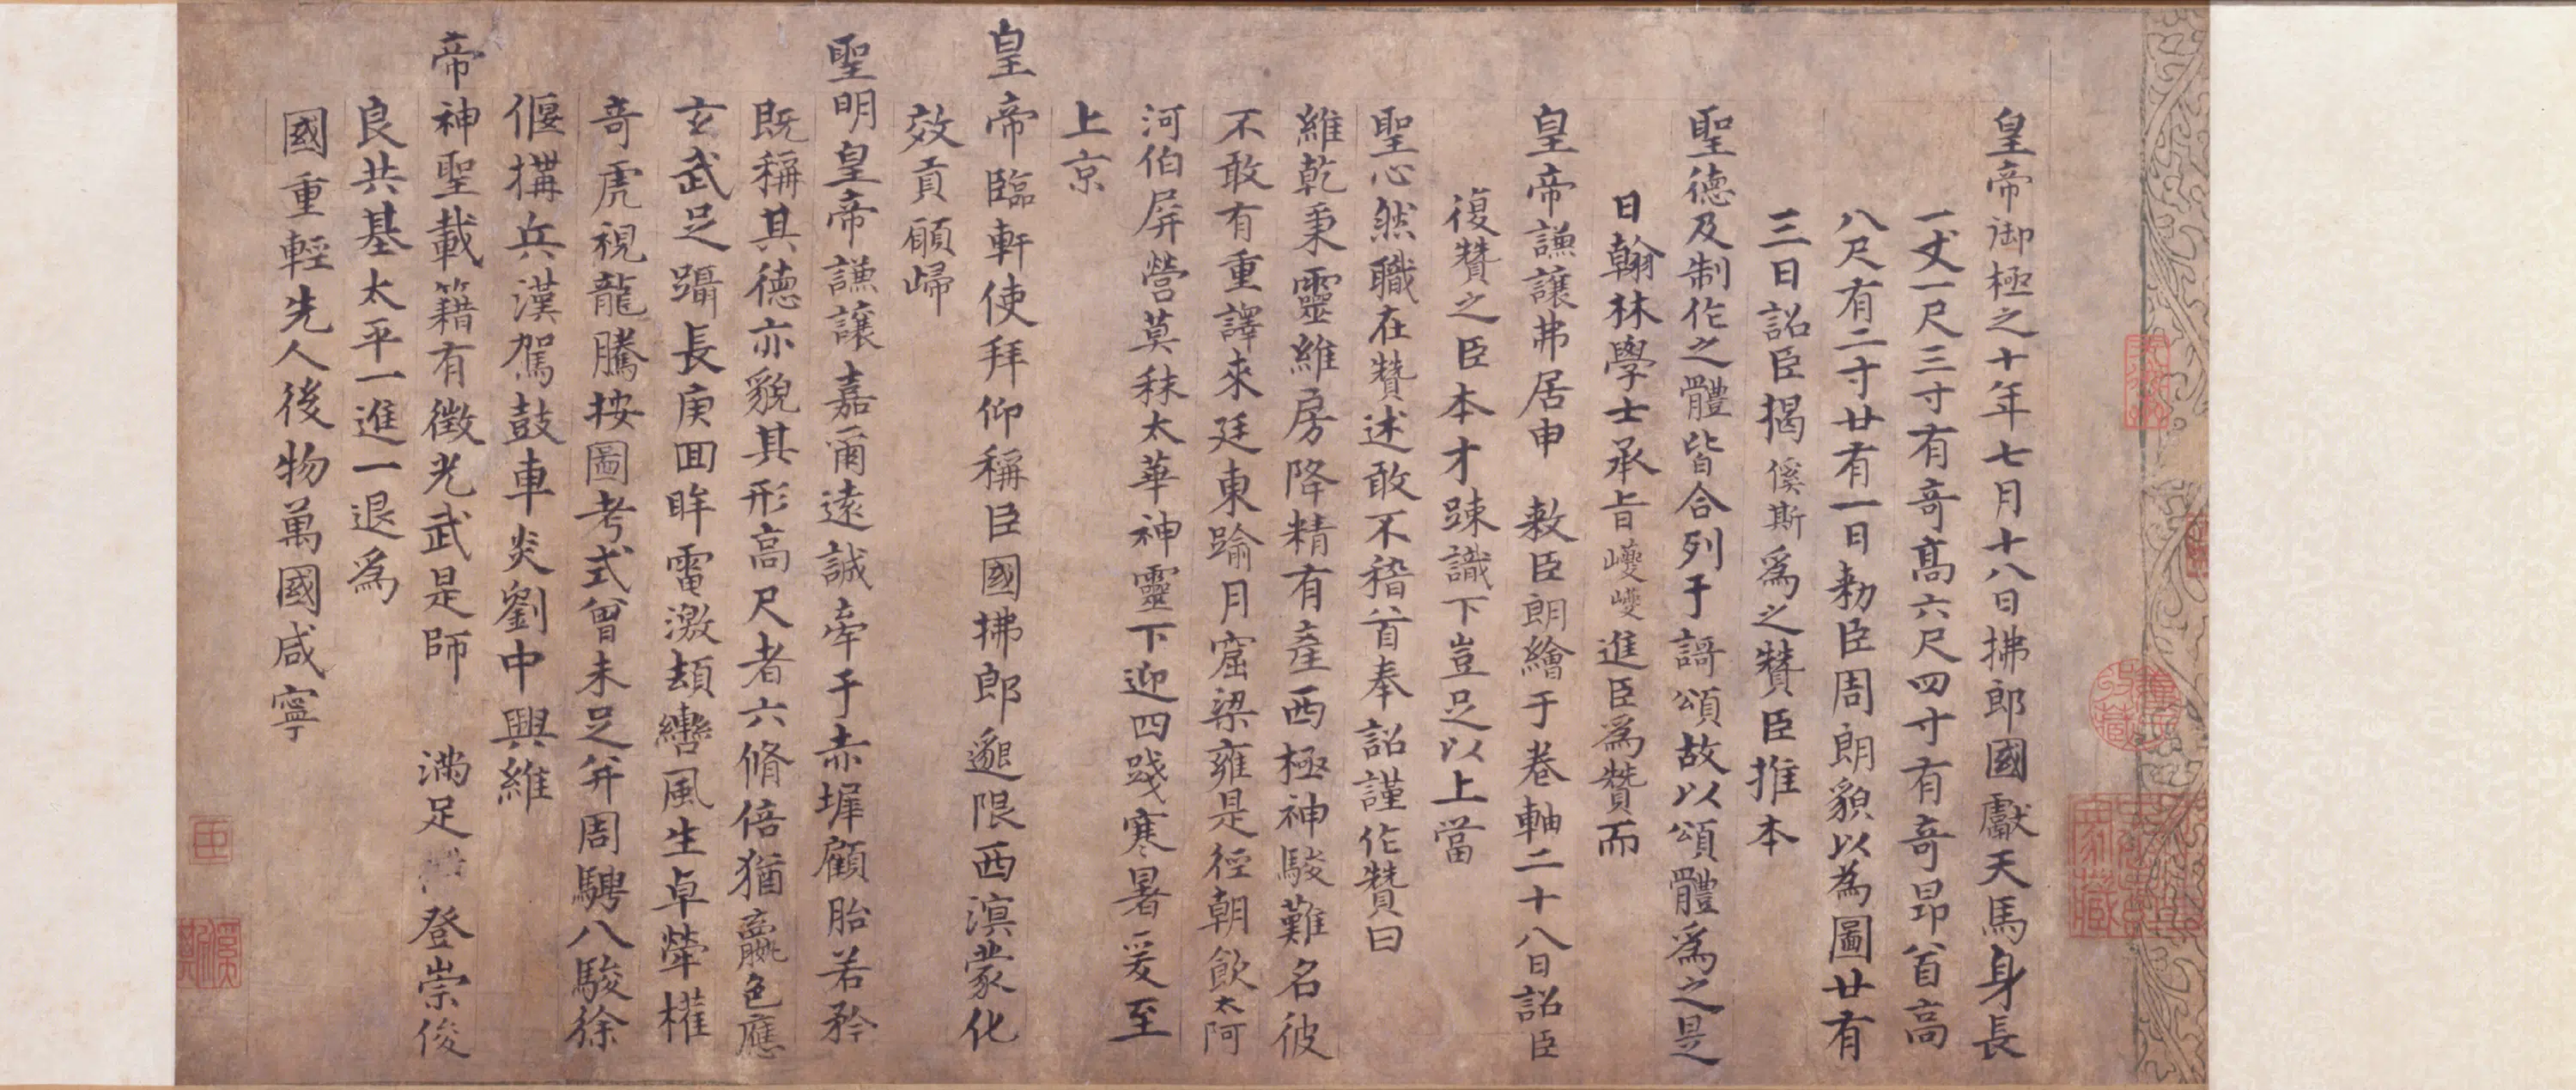 皇帝御極之十年七月十八日拂郎國獻天馬身長
一丈一尺三寸有奇髙六尺四寸有奇昂首高
八尺有二寸廿有一日勑臣周朗貌以為圖廿有
三日詔臣揭傒斯爲之贊臣推本
聖德及制作之體皆合列于謌頌故以頌體爲之是
日翰林學士承旨巙巙進臣爲贊而
皇帝謙讓弗居申敕臣朗繪于卷軸二十八日詔臣
復贊之臣本才踈識下豈足以上當
聖心然職在贊述敢不稽首奉詔謹作贊曰
維乾秉靈維房降精有產西極神駿難名彼
不敢有重譯來廷東踰月窟梁雍是徑朝飲太阿
河伯屏營莫秣太華神靈下迎四踐寒暑爰至
上京
皇帝臨軒使拜仰稱臣國拂郎邈限西溟蒙化
效貢願歸
聖明皇帝謙讓嘉爾遠誠牽于赤墀顧胎若矜
既稱其德亦貌其形高尺者六脩倍猶贏色應
玄武足躡長庚回眸電激頡轡風生卓犖權
奇虎視龍騰按圖考式曾未足并周騁八駿徐
偃搆兵漢駕鼓車炎劉中興維
帝神聖載籍有徵光武是師 满足 登崇俊
良共基太平一進一退爲
國重輕先人後物萬國咸寧
臣
傒斯